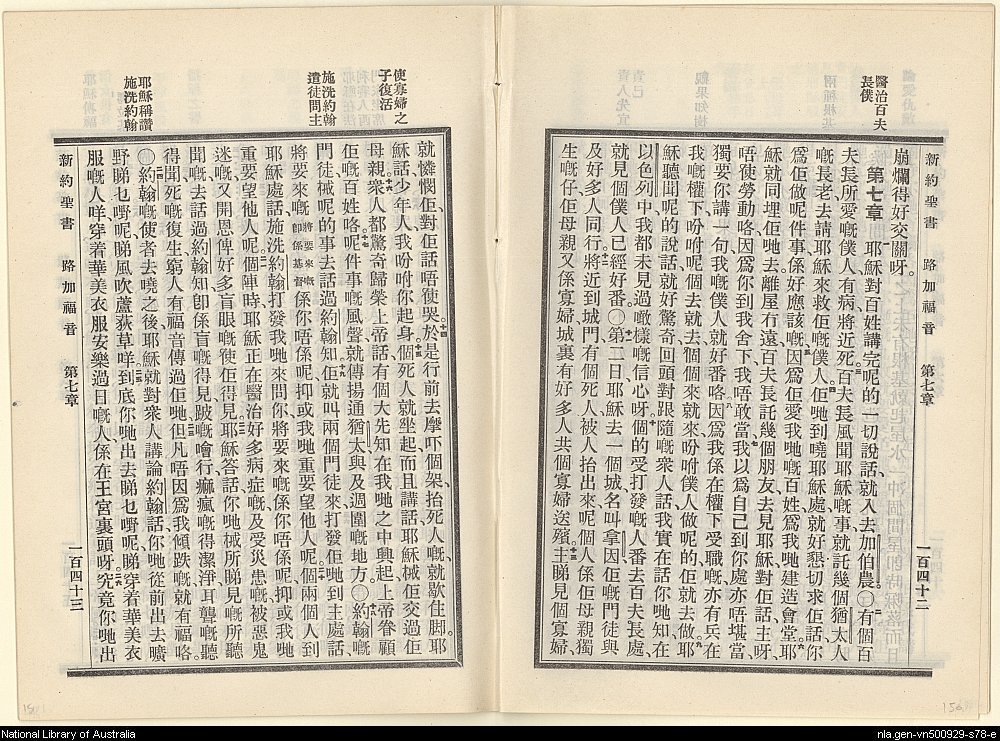 醫治百夫
長僕
新約聖書 路加福音 第七章 一百四十二
崩爛得好交關呀。
第七章 耶穌對百姓講完呢的一切說話就入去加伯農。㊁有個百
夫長所愛嘅僕人有病將近死。百夫長風聞耶穌嘅事就託幾個猶太人
嘅長老去請耶穌來救佢嘅僕人。佢哋到嘵耶穌處就好懇切求佢話你
爲佢做呢件事係好應該嘅因爲佢愛我哋嘅百姓爲我哋建造會堂。耶
穌就同埋佢哋去離屋冇遠百夫長託幾個朋友去見耶穌對佢話主呀、
唔使勞動咯因爲你到我舍下我唔敢當我以爲自己到你處亦唔堪當、
獨要你講一句我嘅僕人就好番咯因爲我係在權下受職嘅亦有兵在
我嘅權下吩咐呢個去就去個個來就來吩咐僕人做呢的佢就去做。耶
穌聽聞呢的說話就好驚奇回頭對跟隨嘅衆人話我實在話你哋知在
以色列中我都未見過噉樣嘅信心呀。個的受打發嘅人番去百夫長處、
就見個僕人已經好番。㊉第二日耶穌去一個城名叫拿因佢嘅門徒與
及好多人同行。將近到城門有個死人被人抬出來呢個人係佢母親獨
生嘅仔佢母親又係寡婦城裏有好多人共個寡婦送殯。主睇見個寡婦
使寡婦之
子復活
施洗約翰
遣徒問主
耶穌稱讚
施洗約翰
就憐憫佢對佢話唔使哭。於是行前去摩吓個架抬死人嘅就歇住脚。耶
穌話少年人我吩咐你起身。個死人就坐起而且講話耶穌械佢交過佢
母親。衆人都驚奇歸榮上帝話有個大先知在我哋之中興起上帝眷顧
佢嘅百姓咯。呢件事嘅風聲就傳揚通猶太與及週圍嘅地方。㊉約翰嘅
門徒械呢的事去話過約翰知。佢就叫兩個門徒來打發佢哋到主處話
將要來嘅卽係基督係你唔係呢抑或我哋重要望他人呢。個兩個人到
耶穌處話施洗約翰打發我哋來問你將要來嘅係你唔係呢抑或我哋
重要望他人呢。個陣時耶穌正在醫治好多病症嘅及受災患嘅被惡鬼
迷嘅又開恩俾好多盲眼嘅使佢得見。耶穌答話你哋械所睇見嘅所聽
聞嘅去話過約翰知卽係盲嘅得見跛嘅噲行痲瘋嘅得潔淨耳聾嘅聽
得聞死嘅復生窮人有福音傳過佢哋。但凡唔因爲我傾跌嘅就有福咯。
㊁約翰嘅使者去嘵之後耶穌就對衆人講論約翰話你哋從前出去曠
野睇乜嘢呢睇風吹蘆荻草咩。到底你哋出去睇乜嘢呢睇穿着華美衣
服嘅人咩穿着華美衣服安樂過日嘅人係在王宮裏頭呀。究竟你哋出
新約聖書 路加福音 第七章 一百四十三
National Library of Australia
nla.gen-vn500929-s78-e